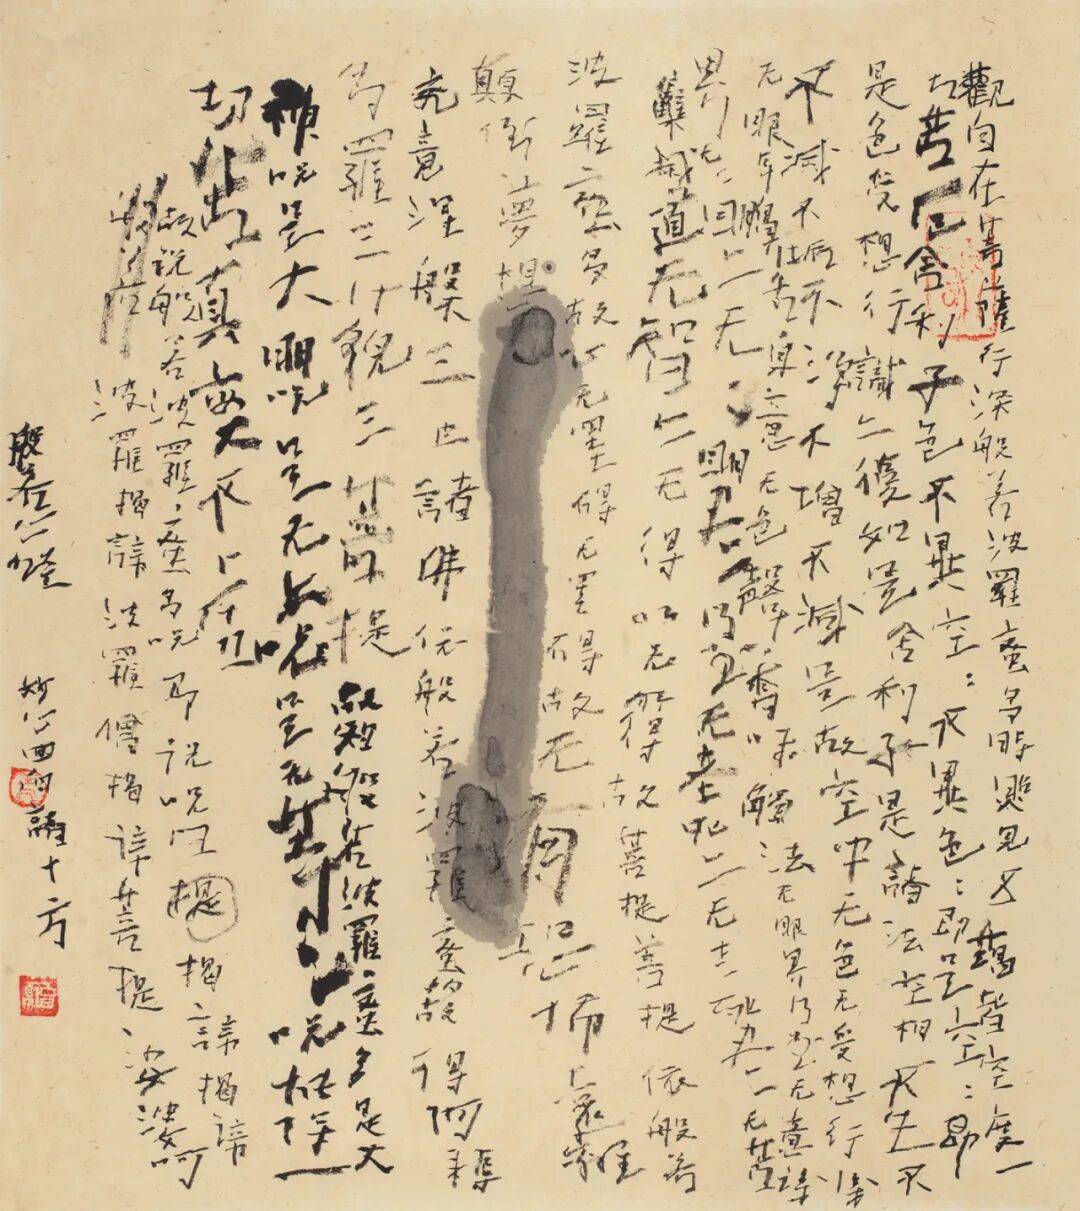 觀自在菩薩行深般若波羅蜜多時照見五蘊皆空度一
切苦厄舍利子色不異空＝不異色＝即是空＝即
是色受想行識亦復如是舍利子是諸法空相不生不
不減不垢不淨不增不減是故空中无色无受想行識
无眼耳鼻舌身意无色聲香味觸法无眼界乃至无意識
界无无明亦无无明盡乃至无老死亦无老死盡亦无苦
集滅道无智亦无得以无所得故菩提菩提依般若
波羅蜜多故心无罣礙无罣礙故无有恐怖遠離
顛倒夢想
究竟涅槃三世諸佛依般若波羅蜜多故得阿耨
多羅三藐三菩提故知般若波羅蜜多是大
神咒是大明咒是无上咒是无等等咒能除一
切苦真實不虛
故說般若波羅蜜多咒即說咒曰揭諦揭諦
波羅揭諦波羅僧揭諦菩提娑婆訶
般若心經
回向諸十方